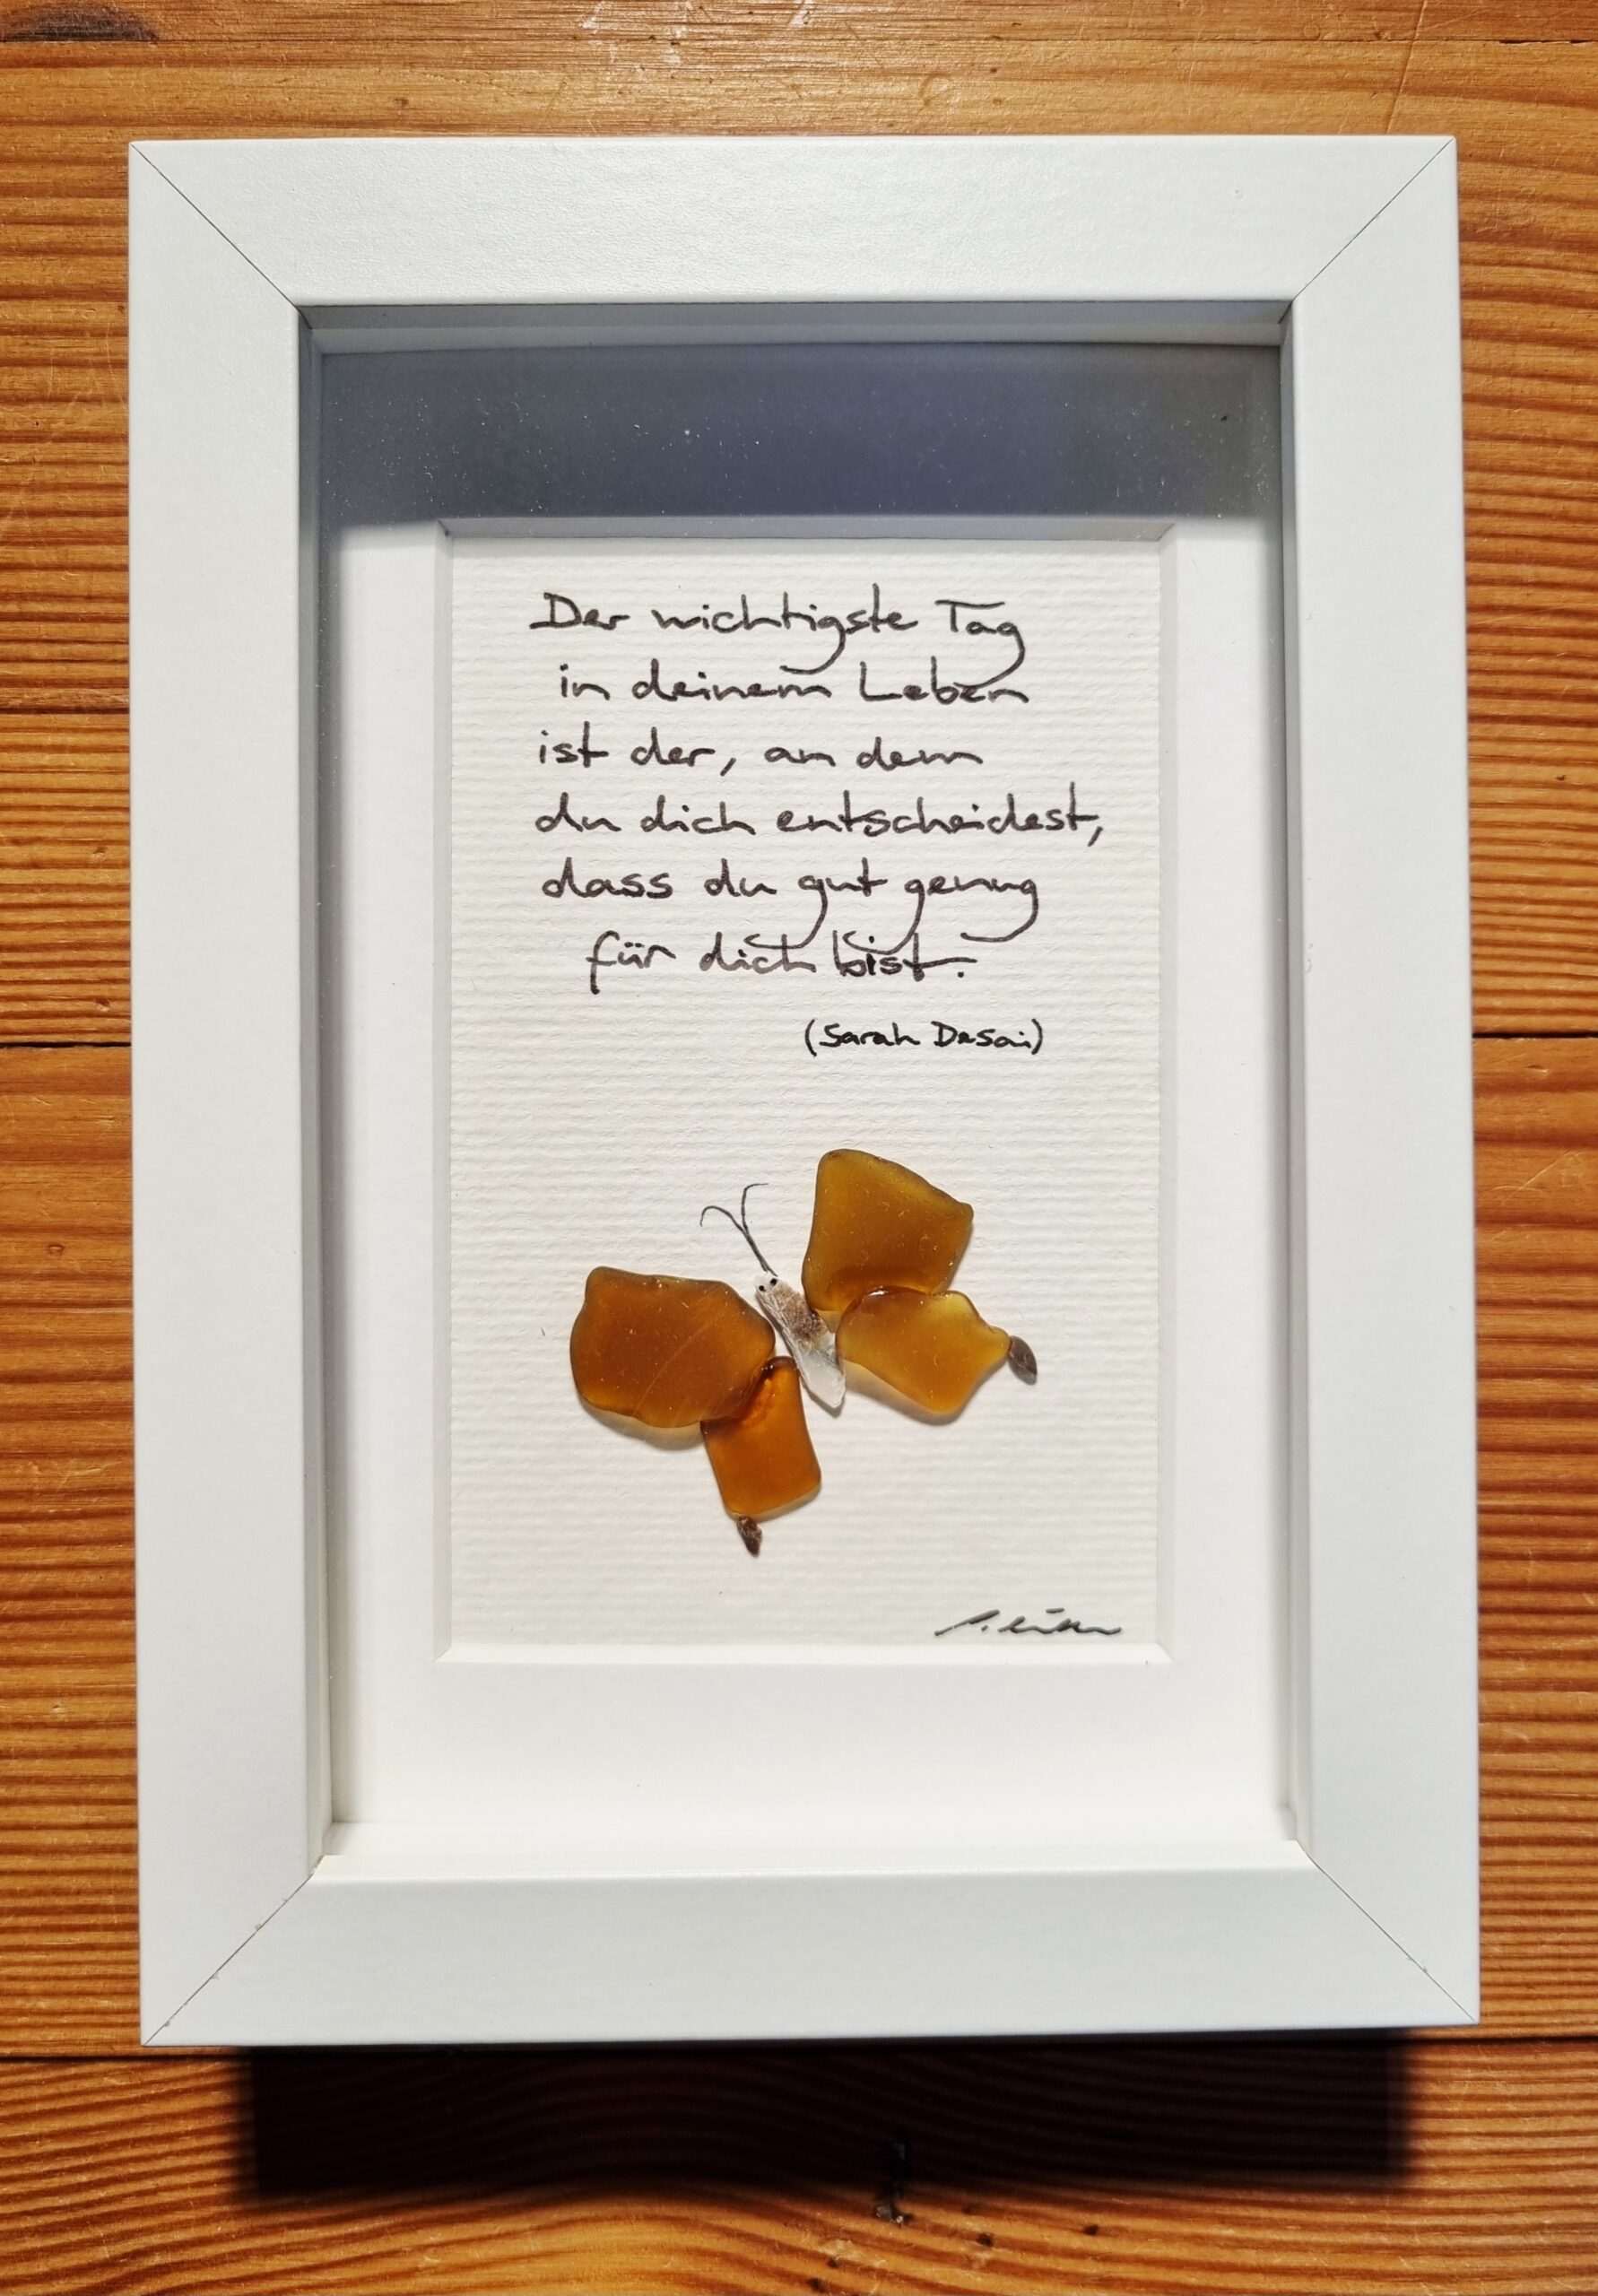 Der wichtigste Tag
in deinem Leben
ist der, an dem
du dich entscheidest,
dass du gut genug
für dich bist.
(Sarah Desai)